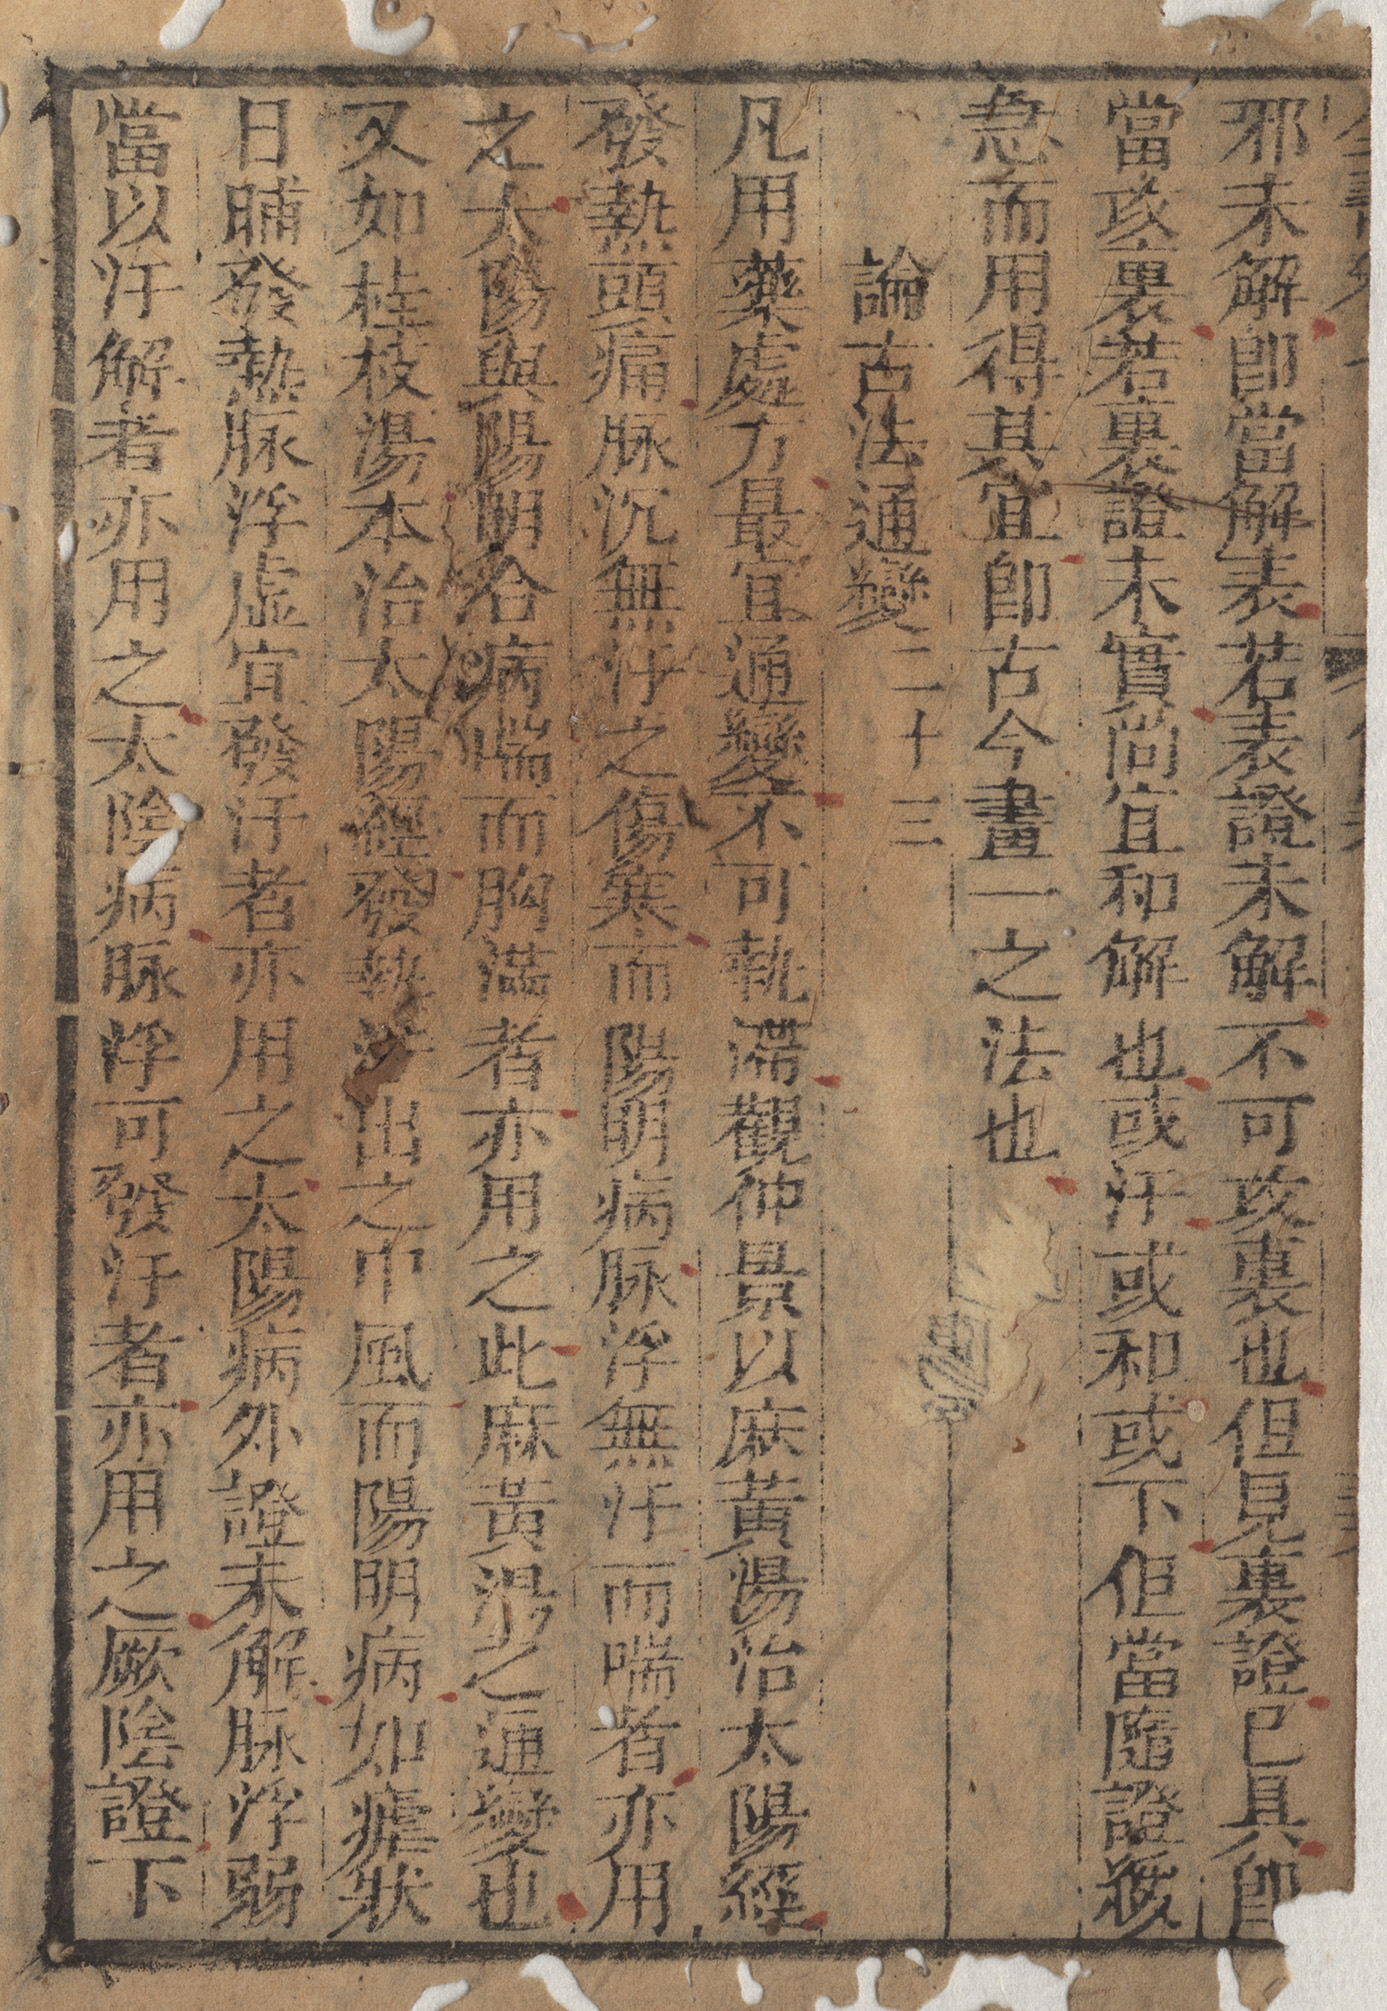 邪未解卽當解表若表證未解不可攻裏也但見裏證已具卽
當攻裏若裏證未實尚宜和解也或汗或和或下但當隨證緩
急而用得其宜卽古今畫一之法也
論古法通變二十三
凡用藥處方最宜通變不可執滯觀仲景以麻黃湯治太陽經
發熱頭痛脉沉無汗之傷寒而陽明病脉浮無汗而喘者亦用
之太陽與陽明合病喘而胸滿者亦用之此麻黃湯之通變也
又如桂枝湯本治太陽經發熱汗出之中風而陽明病如瘧狀
日晡發熱脉浮虛宜發汗者亦用之太陽病外證未解脉浮弱
當以汗解者亦用之太陰病脉浮可發汗者亦用之厥陰證下